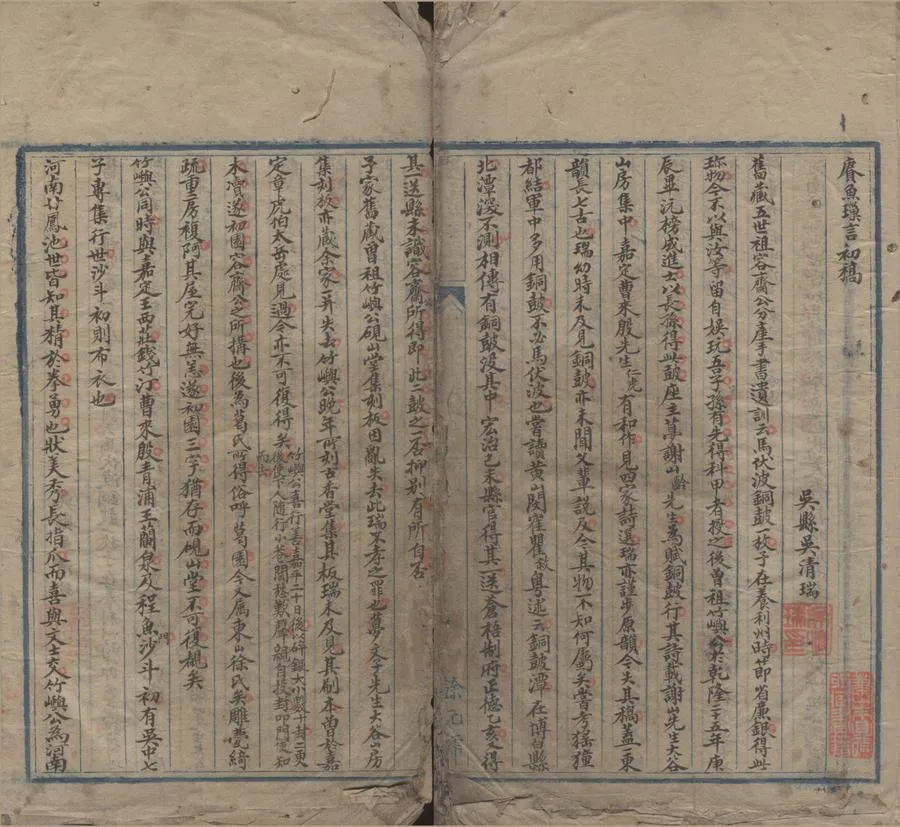 賡魚璅言初稿
吳縣吳清瑞
舊藏五世祖容齋公分產手書遺訓云馬伏波銅鼓一枚予在養利州時節省廉銀得此
珎物今不以與汝等留自娛玩吾子孫有先得科甲者授之後曾祖竹嶼公於乾隆二十五年庚
辰畢沅榜成進士以長倫得此鼓座主夢謝山齡先生為賦銅鼓行其詩載謝山先生大谷
山房集中嘉定曹來殷先生仁虎有和作見四家詩選瑞亦謹步原韻今失其稿蓋一東
韻長七古也瑞幼時未及見銅鼓亦未聞父輩說及今其物不知何屬矣嘗考猺獞
都結軍中多用銅鼓不必馬伏波也嘗讀黃山閔霍瞿敘粵述云銅鼓潭在博白縣
北潭深不測相傳有銅鼓沒其中宏治己未縣官得其一送蒼梧制府正德乙亥又得
其一送縣未識容齋所得即此二鼓之一否抑別有所自否
予家舊藏曾祖竹嶼公硯山堂集刻板因亂失去此瑞不孝之罪也夢文子先生大谷山房
集刻板亦藏余家并失去竹嶼公晚年所刻古香堂集其板瑞未及見其刷本曾於嘉
定章虎伯太岳處見過今亦不可復得矣竹嶼公喜行善嘉平二十日後以碎銀大小製十封二更
後使下人隨行小巷聞愁歎聲親自投封叩門使知
而去
木瀆遂初園容齋公之所搆也後為葛氏所得俗呼葛園今又屬東山徐氏矣雕甍綺
疏重房複阿其屋完好無恙遂初園三字猶存而硯山堂不可復覩矣
竹嶼公同時與嘉定王西莊錢竹汀曹來殷青浦王蘭泉及程魚門沙斗初有吳中七
子專集行世沙斗初則布衣也
河南甘鳳池世皆知其精於拳勇也狀美秀長指爪而喜與文士交竹嶼公為河南